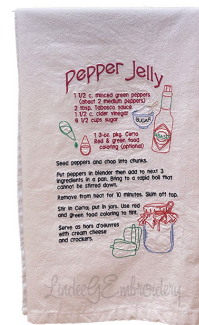 Pepper Jelly
1 1/2 c. minced green peppers
(about 2 medium peppers)
2 tbsp. Tabasco sauce
1 1/2 c. cider vinegar
6 1/2 cups sugar
SUGAR
1 3-oz. pkg. Certo
Red & green food
coloring (optional)
Seed peppers and chop into chunks.
Put peppers in blender then add to next 3
ingredients in a pan. Bring to a rapid boil that
cannot be stirred down.
Remove from heat for 10 minutes. Skim off top.
Stir in Certo, put in jars. Use red
and green food coloring to tint.
Serve as hors d'oeuvres
with cream cheese
and crackers.
LindeeG Embroidery